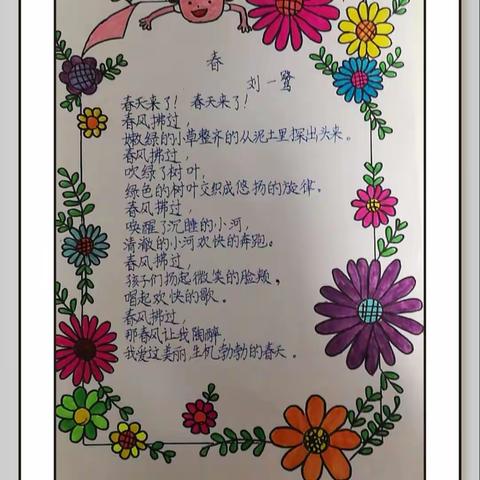 春
刘一鹭
春天来了！ 春天来了！
春风拂过，
嫩绿的小草整齐的从泥土里探出头来。
春风拂过，
吹绿了树叶，
绿色的树叶交织成悠扬的旋律。
春风拂过，
唤醒了沉睡的小河，
清澈的小河欢快的奔跑。
春风拂过，
孩子们扬起微笑的脸颊，
唱起欢快的歌。
春风拂过，
那春风让我陶醉，
我爱这美丽，生机勃勃的春天。